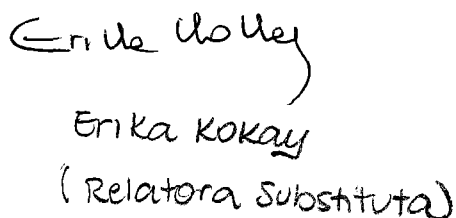 Erika Kokay
Erika Kokay
(Relatora Substituta)